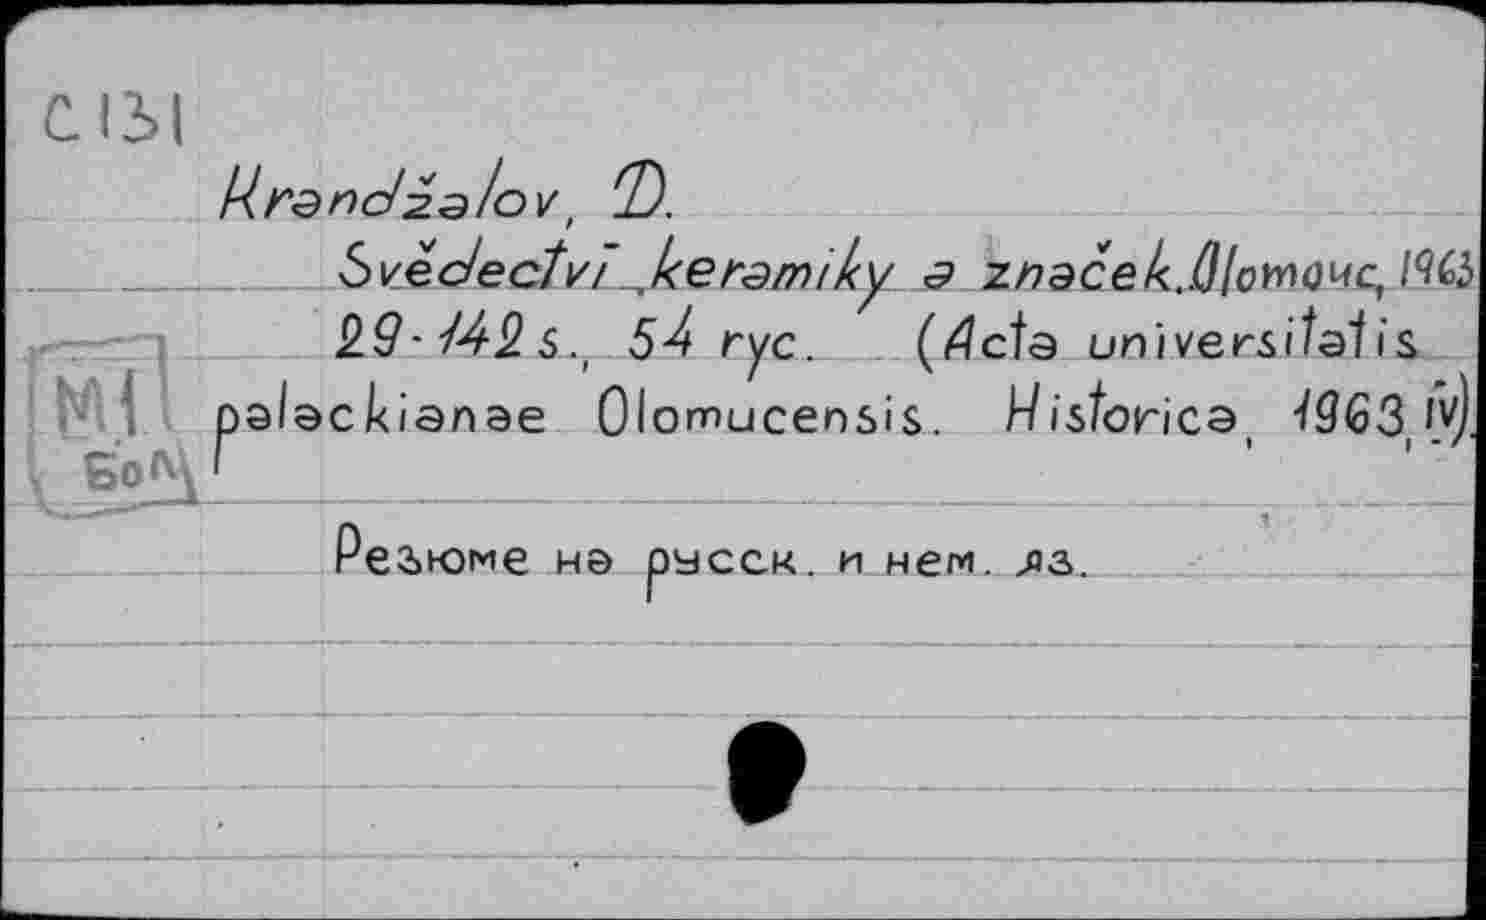 С131
Krandžalov, D.
Svědectví keramiky a značek. Olomouc, 1963
29-142 s., 54 ryc. (Acta universitatis
М1 palackianae Olomucensis. Historica, 1963, IV).
Бол
Резюме на русск. и нем. яз.